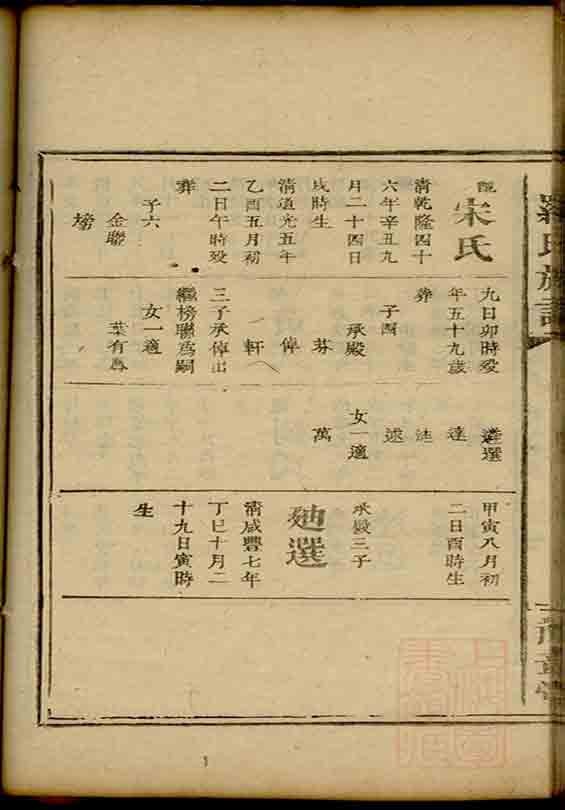 配
宋氏
清乾隆四十
六年辛丑九
月二十四日
戌時生
清道光五年
乙酉五月初
二日午時殁
葬
子六
金聯
榜
九日卯時殁
年五十九歲
葬
子四
承殿
芬
倬
軒
三子承倬出
繼榜聯為嗣
女一適
葉有為
選
達
述
女一適
萬
甲寅八月初
二日酉時生
承殿三子
廸選
清咸豐七年
丁巳十月二
十九日寅時
生
氏族譜